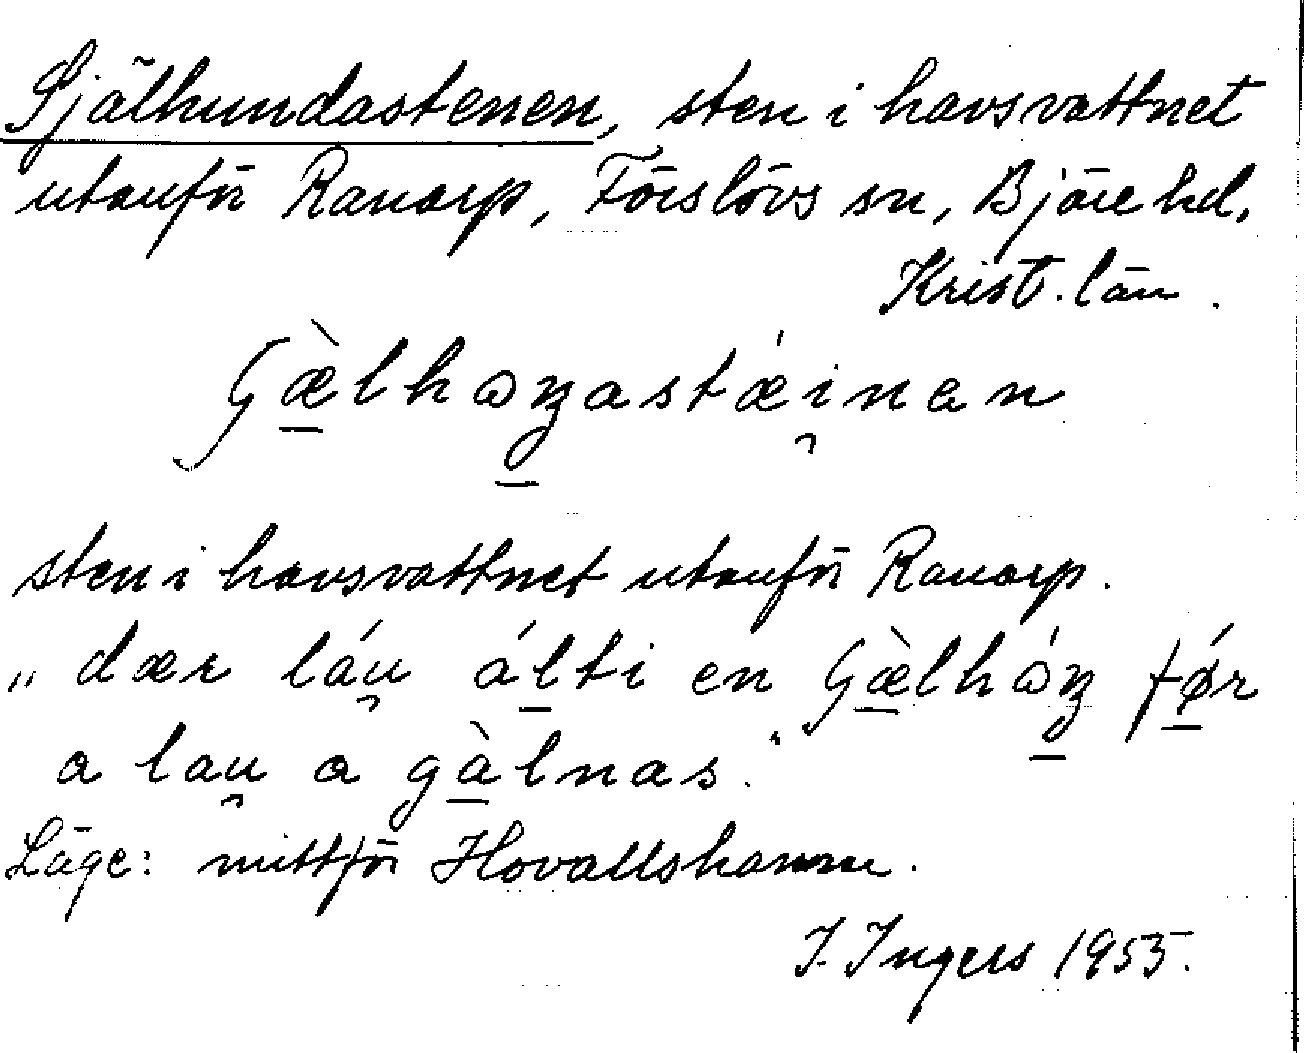 Själhundastenen, sten i havsvattnet
utanför Ranarp, Förslövs sn, Bjäre hd,
Krist. län.
sten i havsvattnet utanför Ranarp.
„dær láu̯ álti en
a lau̯ a gàlnas."
Läge: mittför Hovallshamn.
I. Ingers 1955.